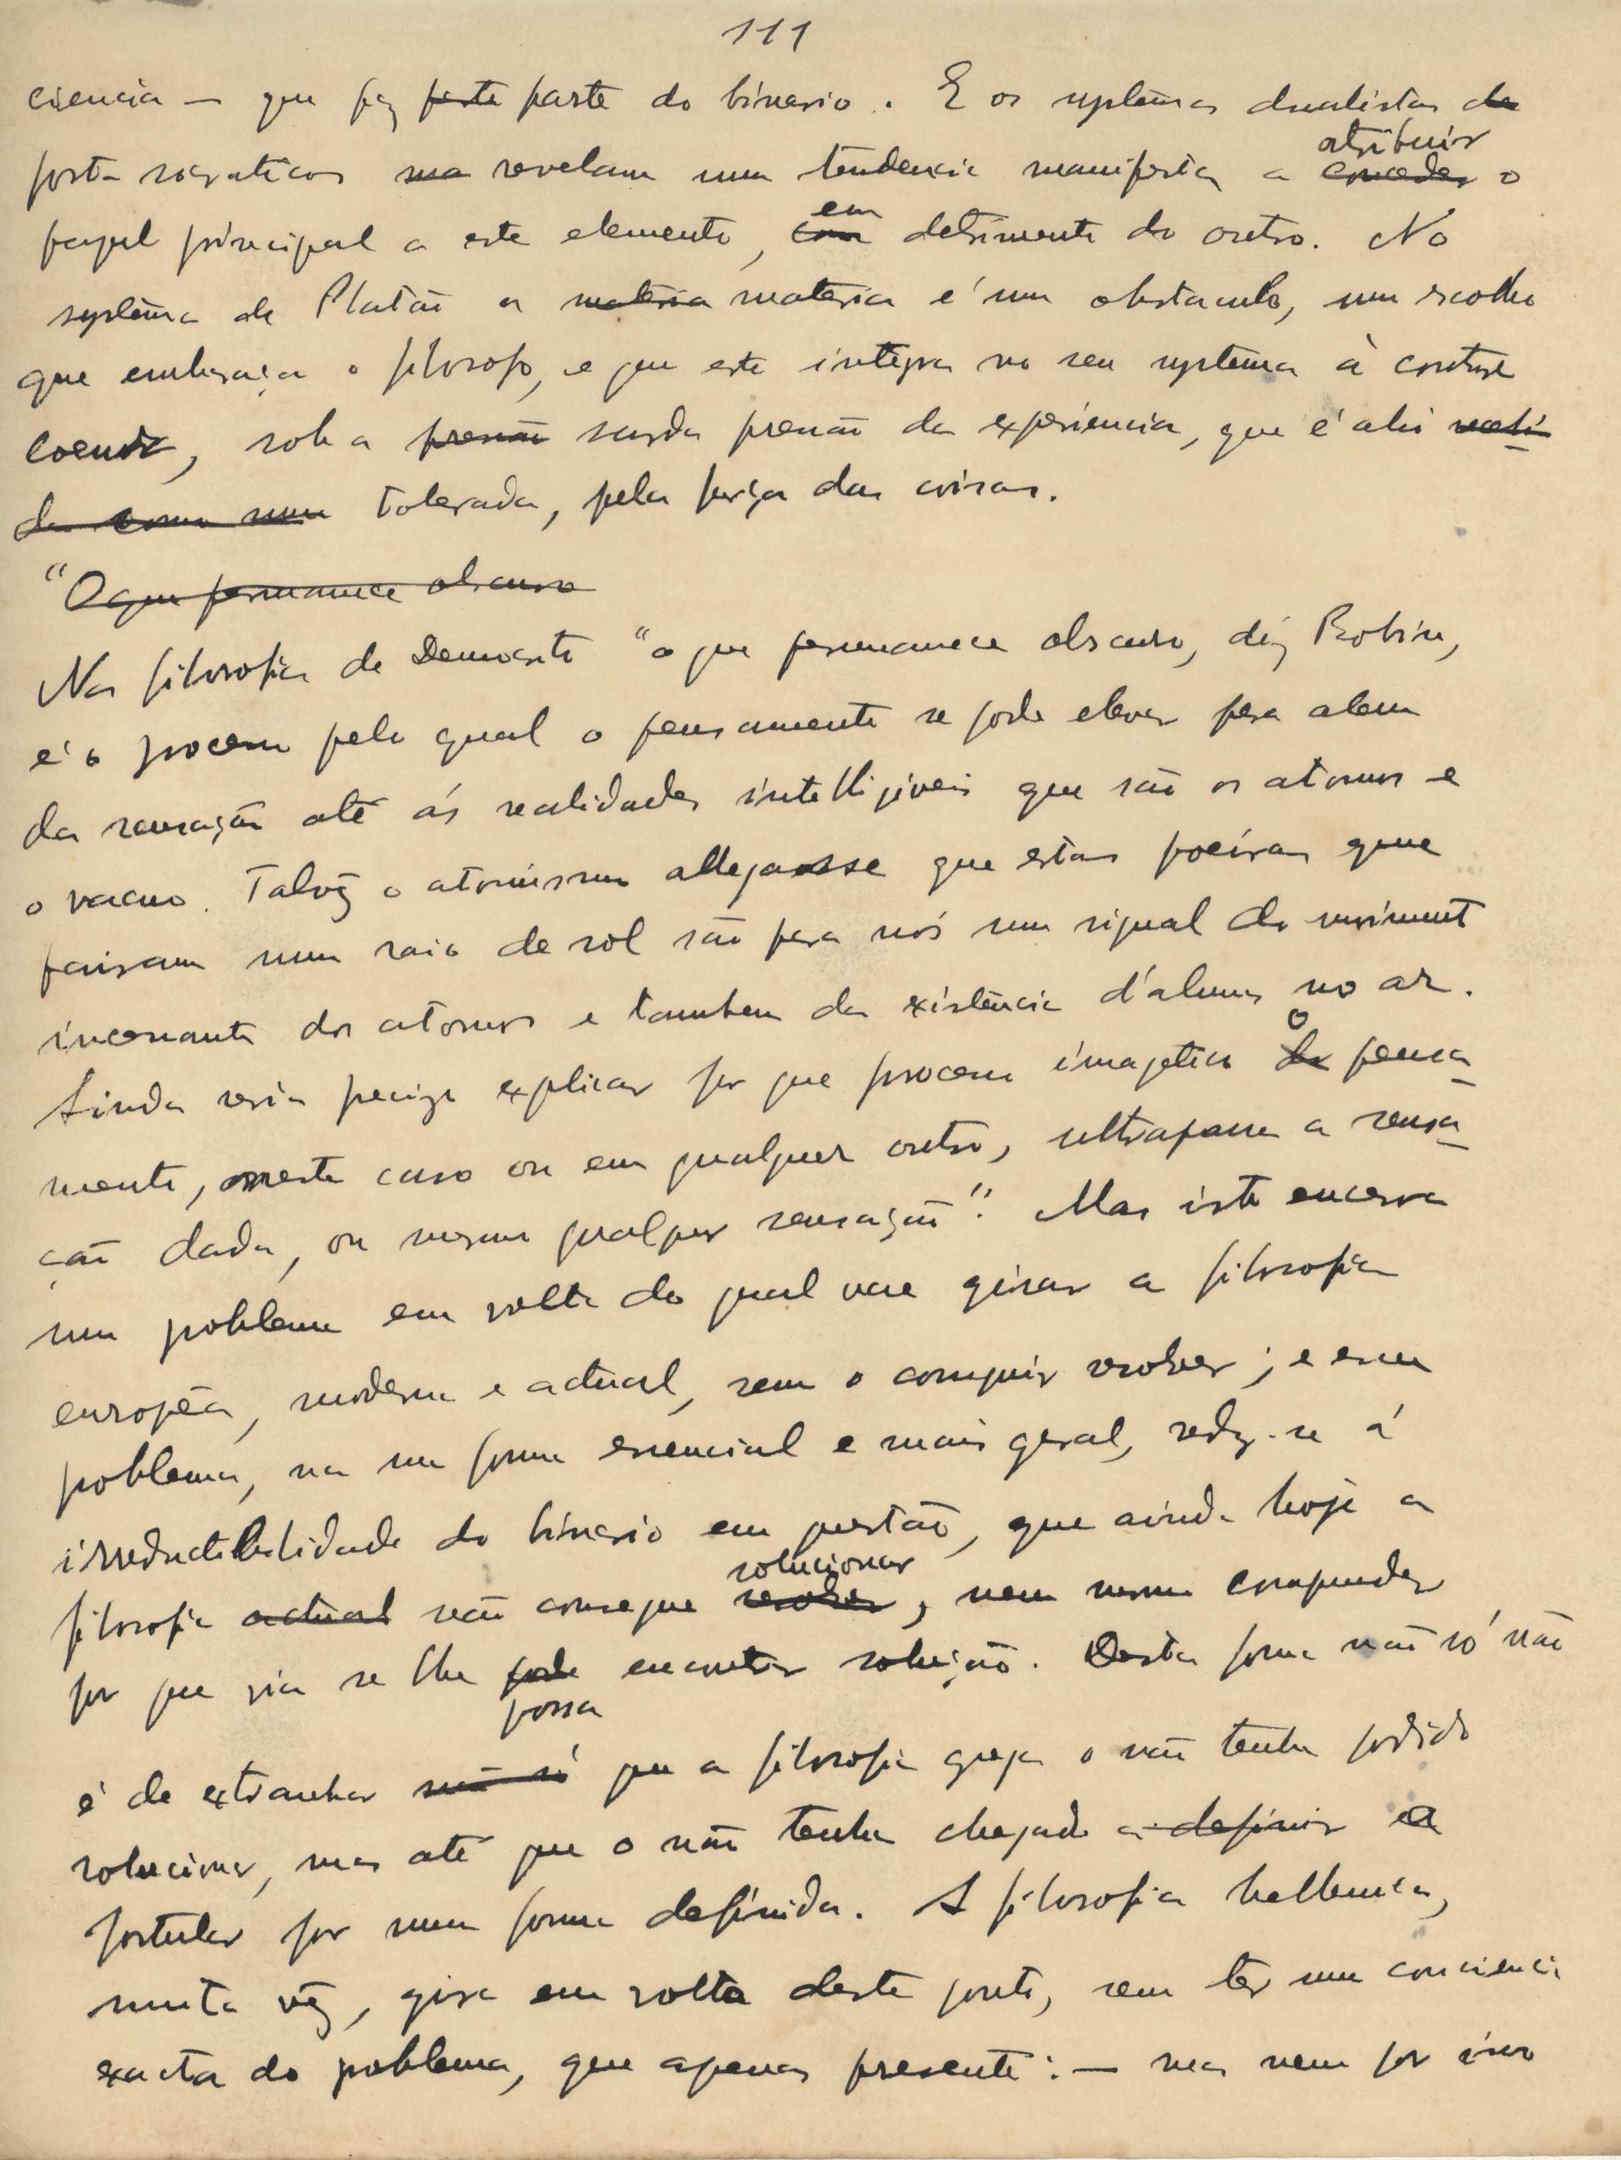 111
ciencia — que faz parte parte do binario. E os systemas dualistas de
post-socraticos na revelam uma tendencia manifesta a conceder atribuir o
papel principal a este elemento, com em detrimento do outro. No
systema de Platão a materia materia é um obstaculo, um escolho
que embaraça o filosofo, e que este integra no seu systema à contre
coeur, sob a pressão surda pressão da experiencia, que é ahi
da como uma tolerada, pela força das coisas.
"O que permanece obscuro
Na filosofia de Democrito "o que permanece obscuro, diz Robin,
é o processo pelo qual o pensamento se pode elevar para alem
da sensação até ás realidades intelligiveis que são os atomos e
o vacuo. Talvez o atomismo allegasse que estas poeiras que
pairam num raio de sol são para nós um signal do moviment
incessante dos atomos e tambem da existência d'almas no ar.
Ainda seria preciso explicar por que processo imagetico do o pensa-
mento, neste caso ou em qualquer outro, ultrapassa a sensa-
ção dada, ou mesmo qualquer sensação". Mas isto encerra
um problema em volta do qual vae girar a filosofia
européa, moderna e actual, sem o conseguir resolver; e esse
problema, na sua forma essencial e mais geral, reduz-se á
irreductibilidade do binario em questão, que ainda hoje a
filosofia actual não consegue resolver solucionar, nem mesmo comprehender
por que via se lhe pode possa encontrar solução. Desta forma não só não
é de extranhar não só que a filosofia grega o não tenha podido
solucionar, mas até que o não tenha chegado a definir a
postular por uma forma definida. A filosofia hellenica,
muita vez, gira em volta deste ponto, sem ter uma consciencia
exacta do problema, que apenas presente: — mas nem por isso